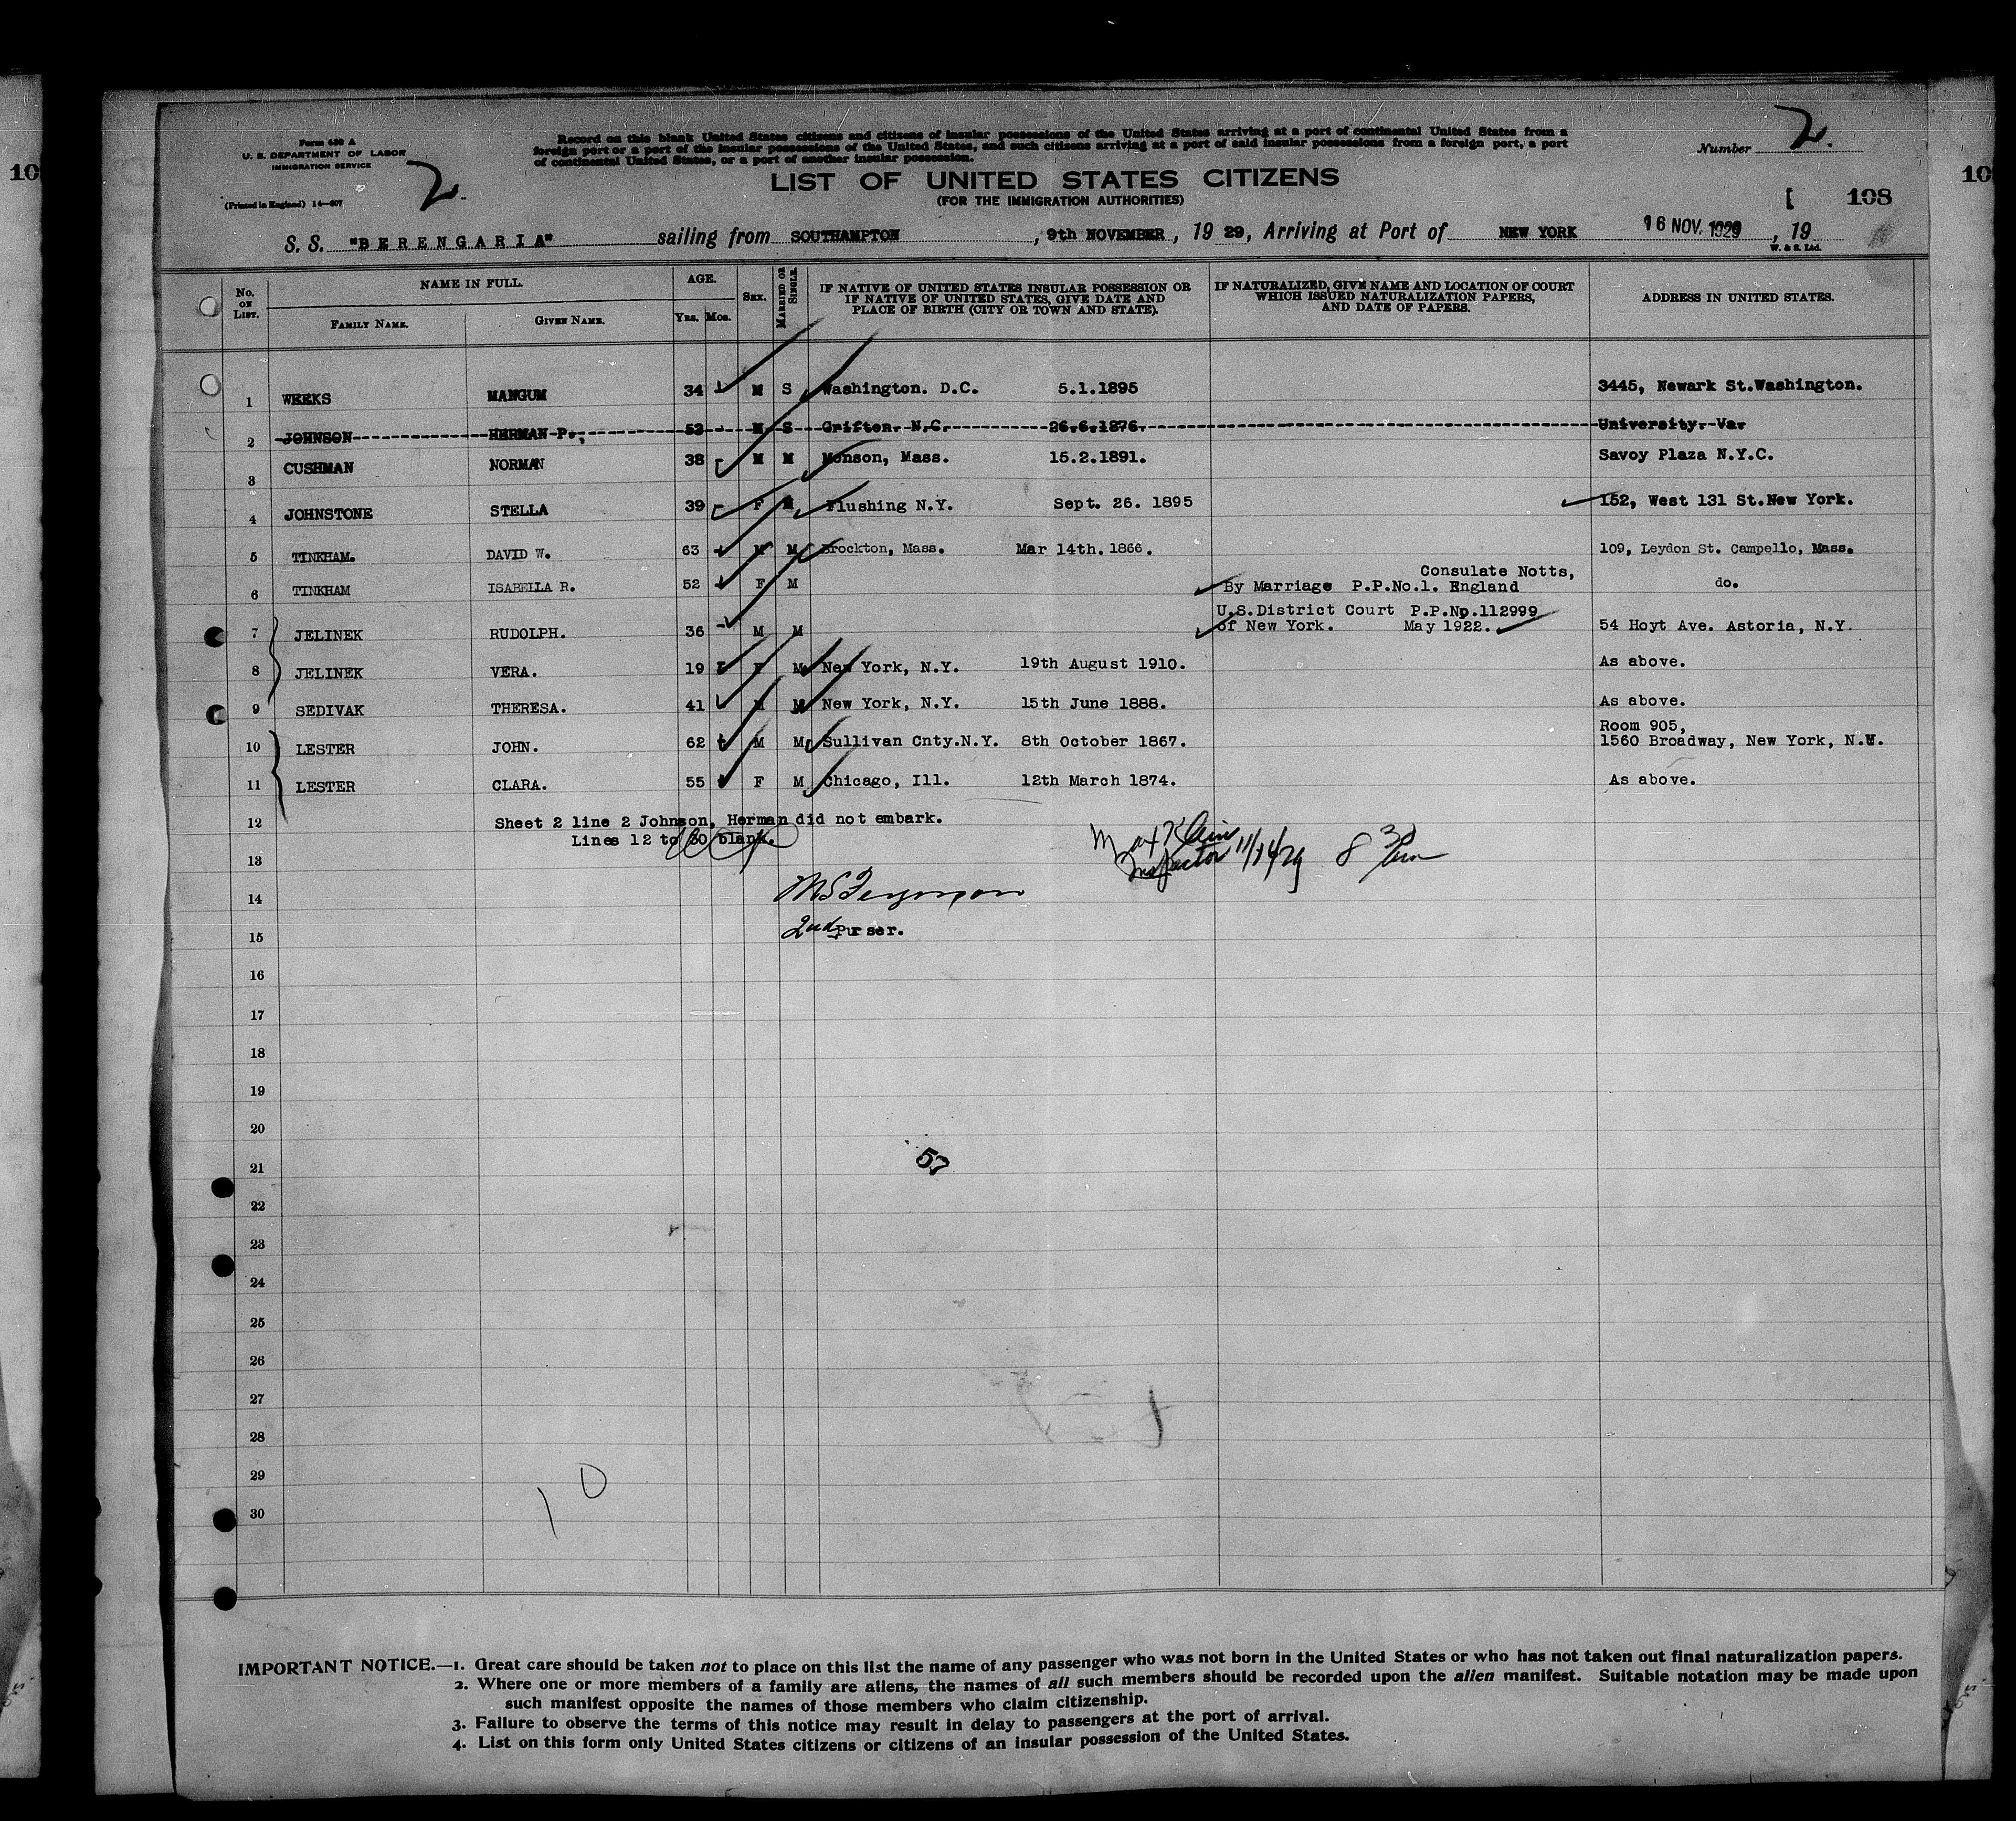 Form 630 A
U. S. DEPARTMENT OF LABOR
IMMIGRATION SERVICE
(Printed in England) 14—607
2.
Record on this blank United States citizens and citizens of insular possessions of the United States arriving at a port of continental United States from a
foreign port or a port of the insular possessions of the United States, and such citizens arriving at a port of said insular possessions from a foreign port, a port
of continental United States, or a port of another insular possession.
LIST OF UNITED STATES CITIZENS
(FOR THE IMMIGRATION AUTHORITIES)
Number 2.
108
10
10
S. S. "BERENGARIA" sailing from SOUTHAMPTON, 9th NOVEMBER, 19 29, Arriving at Port of NEW YORK 16 NOV. 1929, 19
W. & S. Ltd.
No. ON LIST. NAME IN FULL. FAMILY NAME. GIVEN NAME. AGE. YRS. MOS. SEX. MARRIED OR SINGLE. IF NATIVE OF UNITED STATES INSULAR POSSESSION OR IF NATIVE OF UNITED STATES, GIVE DATE AND PLACE OF BIRTH (CITY OR TOWN AND STATE). IF NATURALIZED, GIVE NAME AND LOCATION OF COURT WHICH ISSUED NATURALIZATION PAPERS, AND DATE OF PAPERS. ADDRESS IN UNITED STATES.
1 WEEKS MANGUM 34 M S Washington. D.C. 5.1.1895 3445, Newark St.Washington.
2 JOHNSON HERMAN P. 53 M S Grifton. N.C. 26.6.1876. University. Va.
3 CUSHMAN NORMAN 38 M M Monson, Mass. 15.2.1891. Savoy Plaza N.Y.C.
4 JOHNSTONE STELLA 39 F M Flushing N.Y. Sept. 26. 1895 152, West 131 St.New York.
5 TINKHAM. DAVID W. 63 M M Brockton, Mass. Mar 14th. 1866. 109, Leydon St. Campello, Mass.
6 TINKHAM ISABELLA R. 52 F M By Marriage P.P.No.1. Consulate Notts, England do.
7 JELINEK RUDOLPH. 36 M M U.S.District Court P.P.No.112999 of New York. May 1922. 54 Hoyt Ave. Astoria, N.Y.
8 JELINEK VERA. 19 F M New York, N.Y. 19th August 1910. As above.
9 SEDIVAK THERESA. 41 M New York, N.Y. 15th June 1888. As above.
10 LESTER JOHN. 62 M M Sullivan Cnty.N.Y. 8th October 1867. Room 905, 1560 Broadway, New York, N.Y.
11 LESTER CLARA. 55 F M Chicago, Ill. 12th March 1874. As above.
12 Sheet 2 line 2 Johnson, Herman did not embark.
Lines 12 to 30 blank.
Max Klein
Inspector 11/14/29 8 30 pm
13
14 MS Ferguson
15 2nd Purser.
16
17
18
19
20
21
57
22
23
24
25
26
27
28
29
10
30
IMPORTANT NOTICE.—1. Great care should be taken not to place on this list the name of any passenger who was not born in the United States or who has not taken out final naturalization papers.
2. Where one or more members of a family are aliens, the names of all such members should be recorded upon the alien manifest. Suitable notation may be made upon
such manifest opposite the names of those members who claim citizenship.
3. Failure to observe the terms of this notice may result in delay to passengers at the port of arrival.
4. List on this form only United States citizens or citizens of an insular possession of the United States.